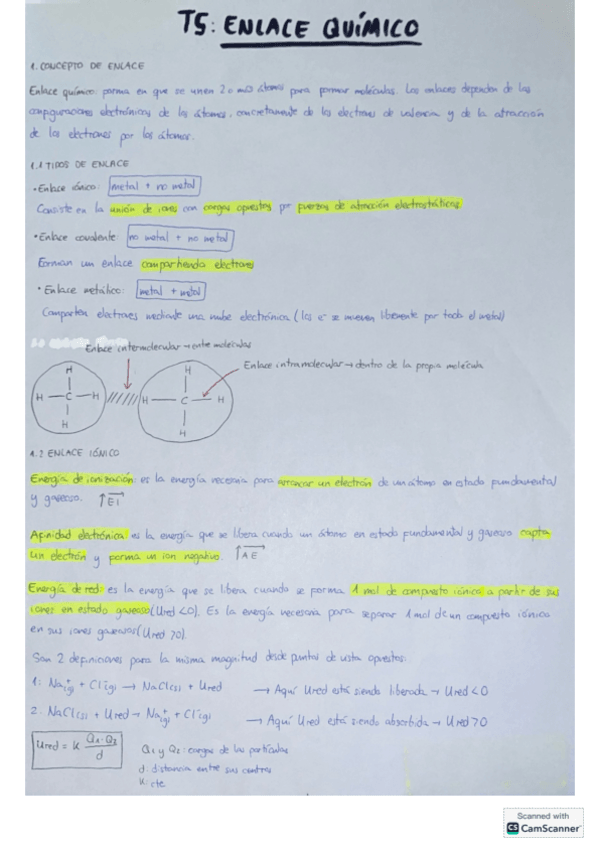 T5: ENLACE QUÍMICO
1. CONCEPTO DE ENLACE
Enlace químico: forma en que se unen 2 o más átomos para formar moléculas. Los enlaces dependen de las
configuraciones electrónicas de los átomos, concretamente de los electrones de valencia y de la atracción
de los electrones por los átomos.
1.1 TIPOS DE ENLACE
• Enlace iónico: metal + no metal
Consiste en la unión de iones con cargas opuestas por fuerzas de atracción electrostáticas.
• Enlace covalente: no metal + no metal
Forman un enlace compartiendo electrones
• Enlace metálico: metal + metal
Comparten electrones mediante una nube electrónica (los e⁻ se mueven libremente por todo el metal)
Enlace intermolecular → entre moléculas
Enlace intramolecular → dentro de la propia molécula
H H
H — C — H H — C — H
H H
1.2 ENLACE IÓNICO
Energía de ionización: es la energía necesaria para arrancar un electrón de un átomo en estado fundamental
y gaseoso. ↑EI
Afinidad electrónica: es la energía que se libera cuando un átomo en estado fundamental y gaseoso capta
un electrón y forma un ion negativo. ↑AE
Energía de red: es la energía que se libera cuando se forma 1 mol de compuesto iónico a partir de sus
iones en estado gaseoso (Ured <0). Es la energía necesaria para separar 1 mol de un compuesto iónico
en sus iones gaseosos (Ured >0).
Son 2 definiciones para la misma magnitud desde puntos de vista opuestos:
1: Na⁺(g) + Cl⁻(g) → NaCl(s) + Ured → Aquí Ured está siendo liberada → Ured <0
2: NaCl(s) + Ured → Na⁺(g) + Cl⁻(g) → Aquí Ured está siendo absorbida → Ured >0
Ured = K Q₁·Q₂ / d
Q₁ y Q₂: cargas de las partículas
d: distancia entre sus centros
K: cte
Scanned with
CS CamScanner